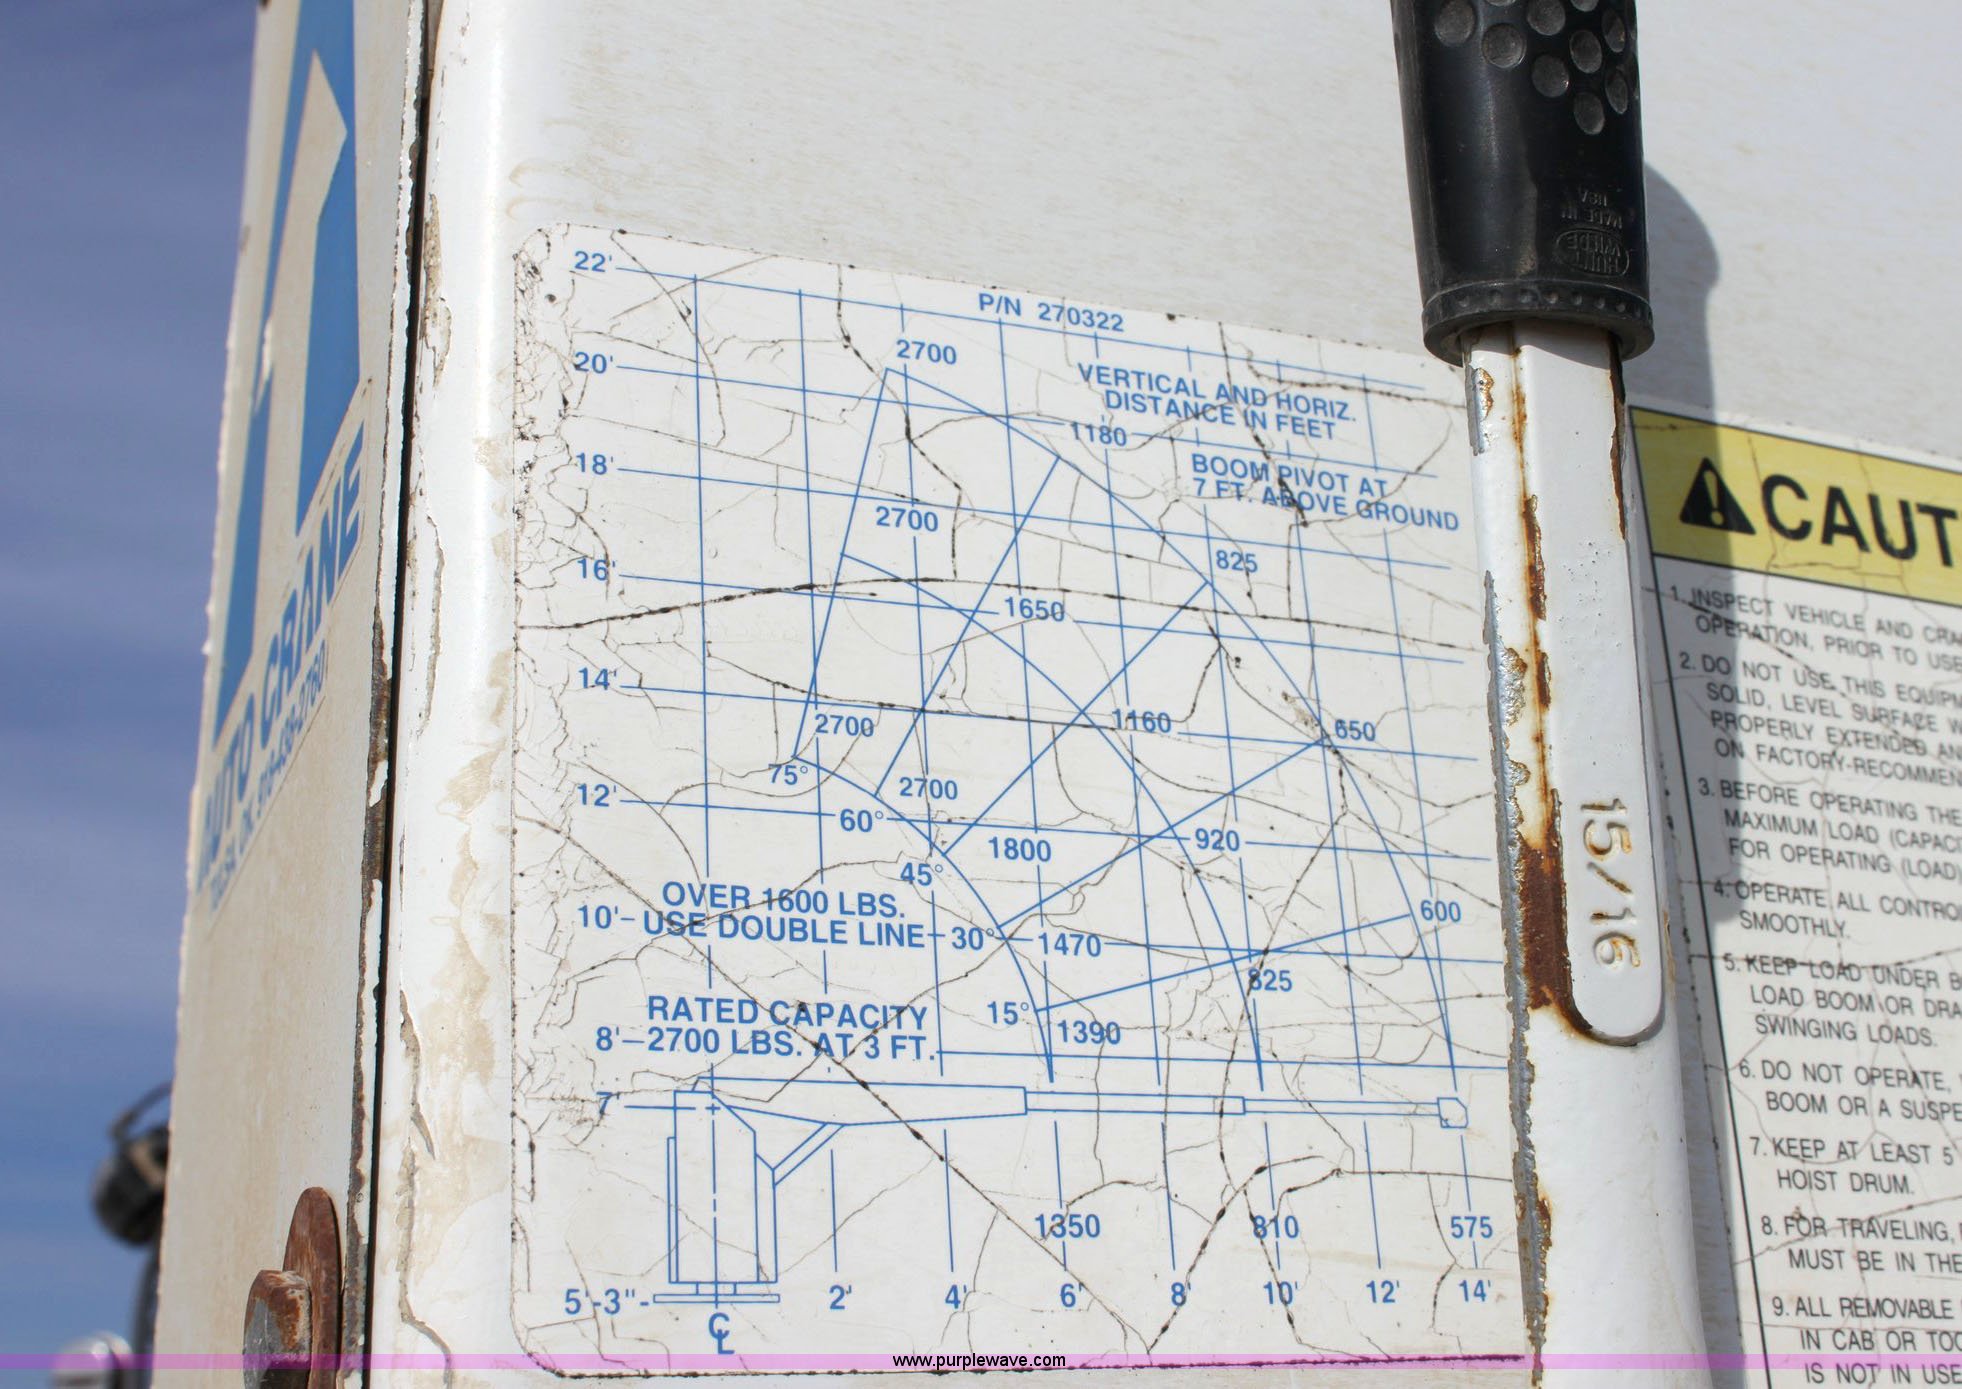 AUTO CRANE
TULSA, OK. 918-438-2760
HUNT
WILDE
MADE IN
USA
15/16
P/N 270322
VERTICAL AND HORIZ.
DISTANCE IN FEET
BOOM PIVOT AT
7 FT. ABOVE GROUND
22'
20'
18'
16'
14'
12'
10'
8'
7'
5'-3"
2700
1180
2700
825
1650
2700
1160
650
75°
2700
60°
1800
920
45°
600
OVER 1600 LBS.
USE DOUBLE LINE
30°
1470
825
15°
1390
RATED CAPACITY
2700 LBS. AT 3 FT.
1350
810
575
2'
4'
6'
8'
10'
12'
14'
CL
CAUT
1. INSPECT VEHICLE AND CRA
OPERATION, PRIOR TO USE
2. DO NOT USE THIS EQUIPM
SOLID, LEVEL SURFACE W
PROPERLY EXTENDED AN
ON FACTORY-RECOMMEN
3. BEFORE OPERATING THE
MAXIMUM LOAD (CAPACI
FOR OPERATING (LOAD)
4. OPERATE ALL CONTRO
SMOOTHLY.
5. KEEP LOAD UNDER B
LOAD BOOM OR DRA
SWINGING LOADS.
6. DO NOT OPERATE,
BOOM OR A SUSPE
7. KEEP AT LEAST 5
HOIST DRUM.
8. FOR TRAVELING,
MUST BE IN THE
9. ALL REMOVABLE
IN CAB OR TOO
IS NOT IN USE
www.purplewave.com